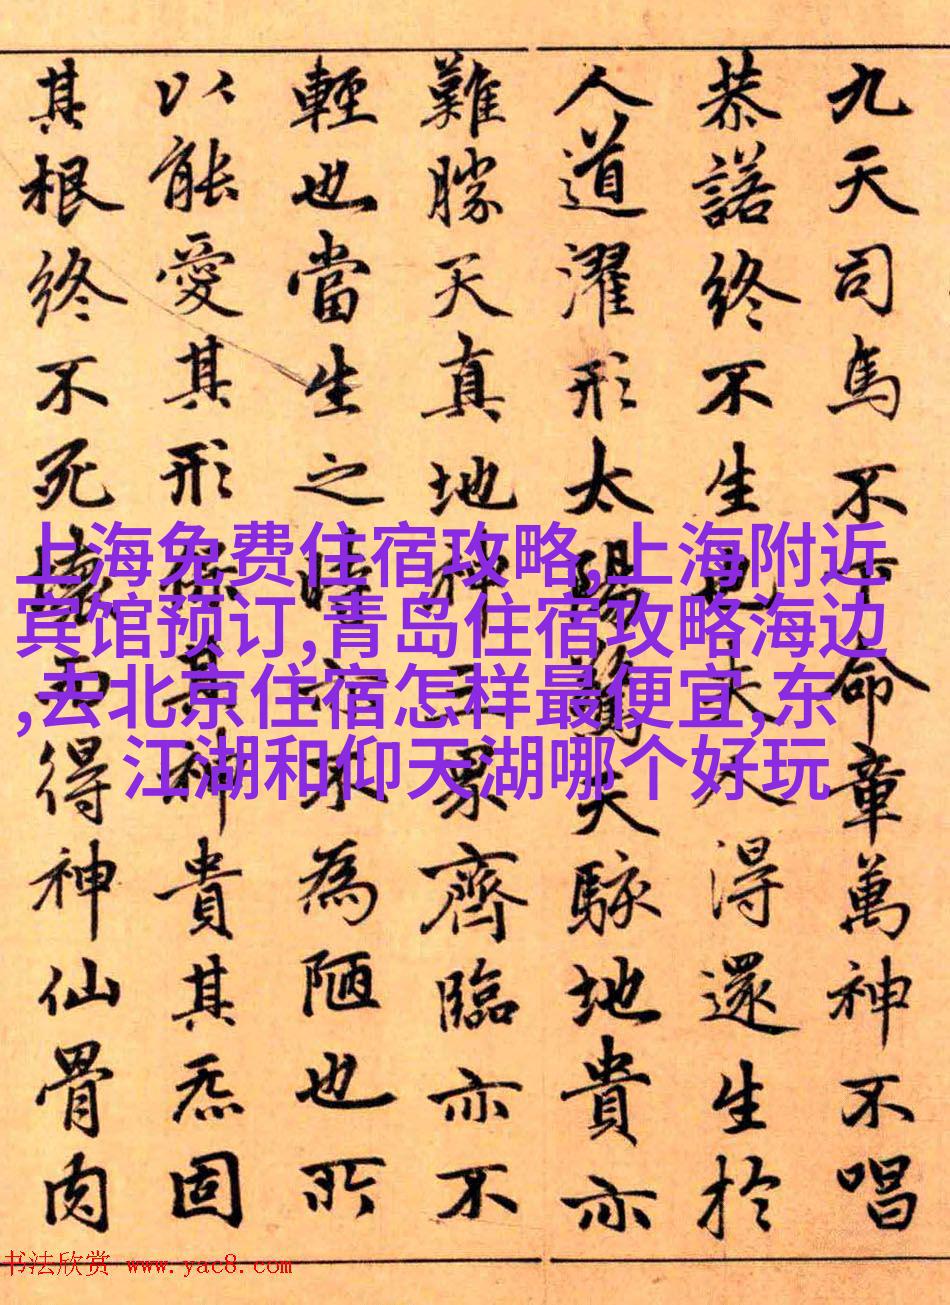 九天司馬不下命章萬神不唱
恭諾終不生見大人得還生於
人道濯形太陽驚天駭地貴亦
難勝天真地神三界齊臨亦不
輕也當生之時亦不為陋也所
以能愛其形保其神貴其炁固
其根終不死壞而得神仙骨肉
上海免费住宿攻略,上海附近
宾馆预订,青岛住宿攻略海边
,去北京住宿怎样最便宜,东
江湖和仰天湖哪个好玩
书法欣赏 www.yac8.com